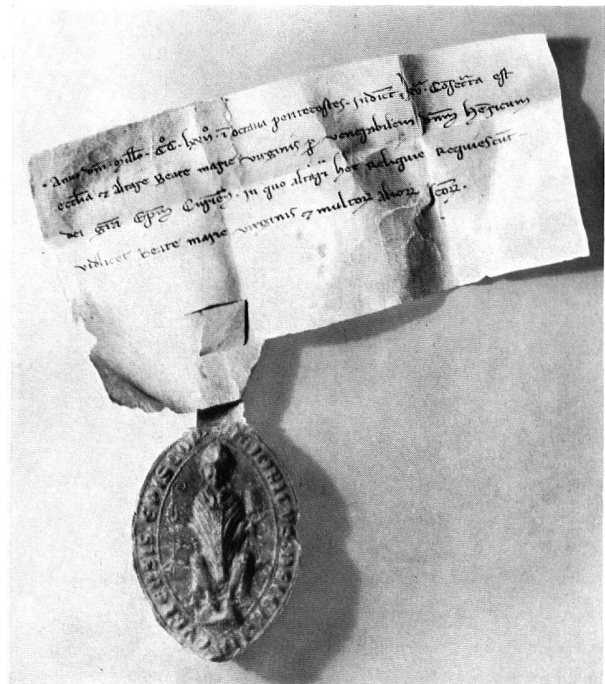 Anno dm̄ millo · CC · lxxii · ī octaua pentecostes · Jndict · xv · Cōsecrata est
ecclīa et altare Beate marie virginis p venerabilem dnm Henricum
dei grā Epm Curiēn · In quo altari hec Reliquie Requiescūt ·
videlicet Beate marie virginis et multorꝝ aliorꝝ scorꝝ ·